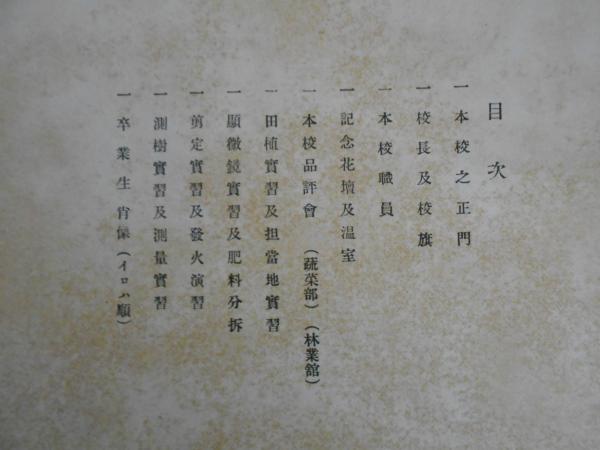 目次
一 本校之正門
一 校長及校旗
一 本校職員
一 記念花壇及温室
一 本校品評會 (蔬菜部) (林業舘)
一 田植實習及担當地實習
一 顯微鏡實習及肥料分拆
一 剪定實習及發火演習
一 測樹實習及測量實習
一 卒業生肖像 (イロハ順)